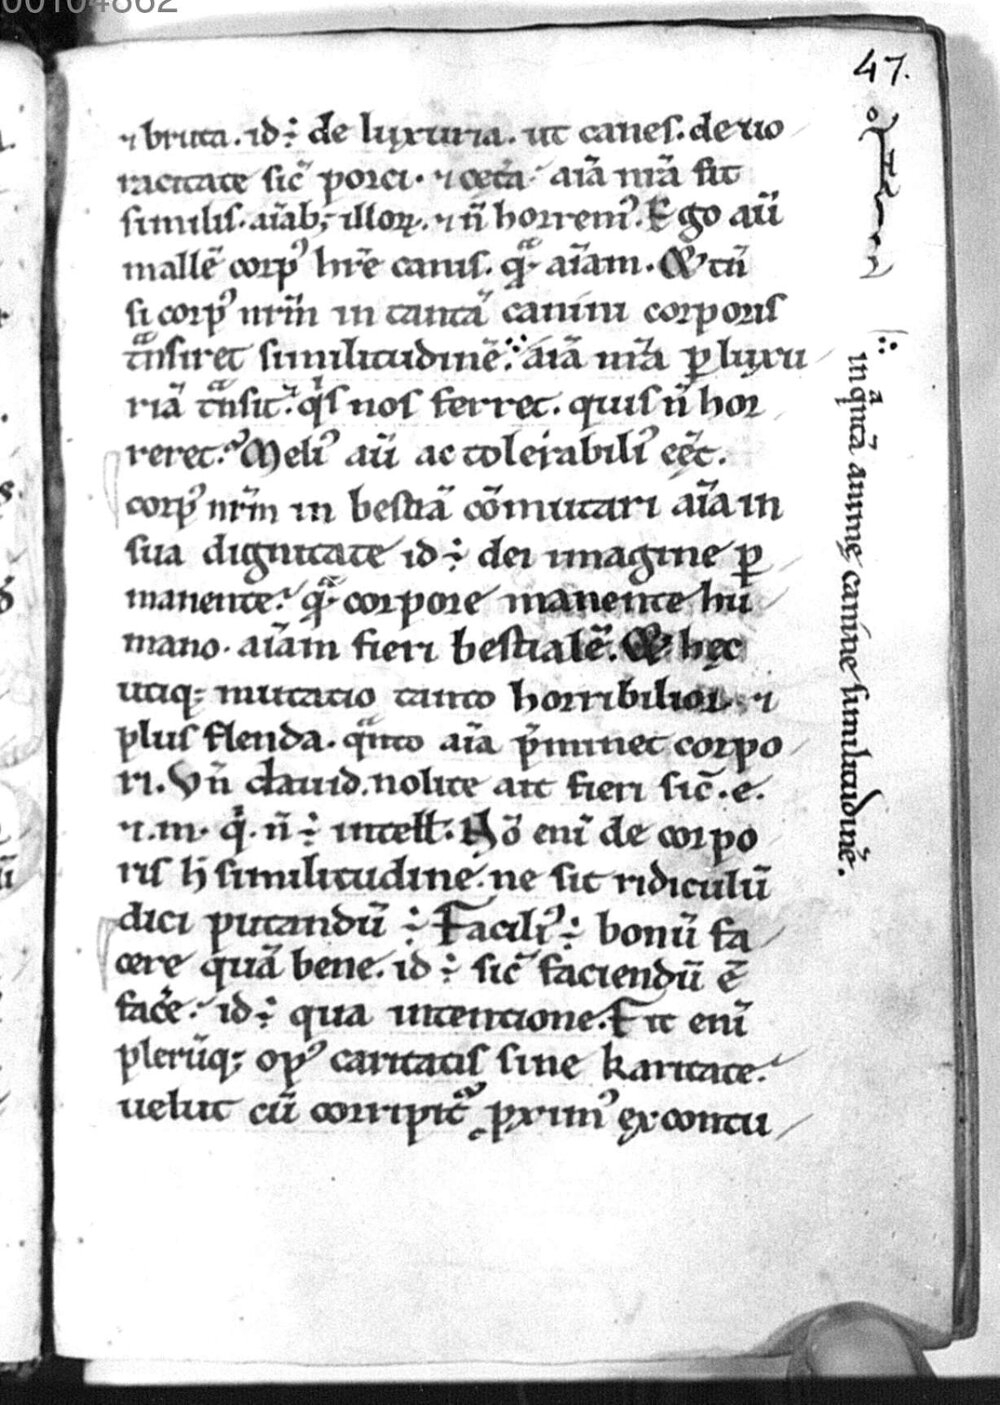 00104862
47.
⁊ bruta. id÷ de luxuria. ut canes. de uo
racitate sic̄ porci. ⁊ cet̄a aīa nr̄a sit
similis. aīab; illoꝝ. ⁊ n̄ horrem᾿. Ego aū
mallē corp᾿ hr̄e canis. qͣ aīam. Et cū
si corp᾿ nr̄m in tantā canini corporis
tͣnsiret similitudinē. aīa nr̄a ꝑ luxu
riā tͣnsit. qͥs nos ferret. quis n̄ hor
reret. Meli᾿ aū ac tolerabili᾿ eēt.
corp᾿ nr̄m in bestiā cōmutari aīa in
sua dignitate id÷ dei imagine ꝑ
manente. qͣ corpore manente hu
mano. aīam fieri bestialē. Et hęc
utiq; mutatio tanto horribilior ⁊
plus flenda. qͣnto aīa p̄minet corpo
ri. Vn̄ dauid. nolite ait fieri sic̄. e.
⁊. m. qͥ. n̄ ÷ intell. Nō enī de corpo
ris h̄ similitudine. ne sit ridiculū
dici putandū ÷ Facili᾿ ÷ bonū fa
cere quā bene. id÷ sic̄ faciendū ē
facēe. id÷ qua intentione. Fit enī
plerūq; op᾿ caritatis sine karitate.
uelut cū corripit᷑ ꝓxim᾿ ex contu
in qͣntā animę caninę similitudinē.